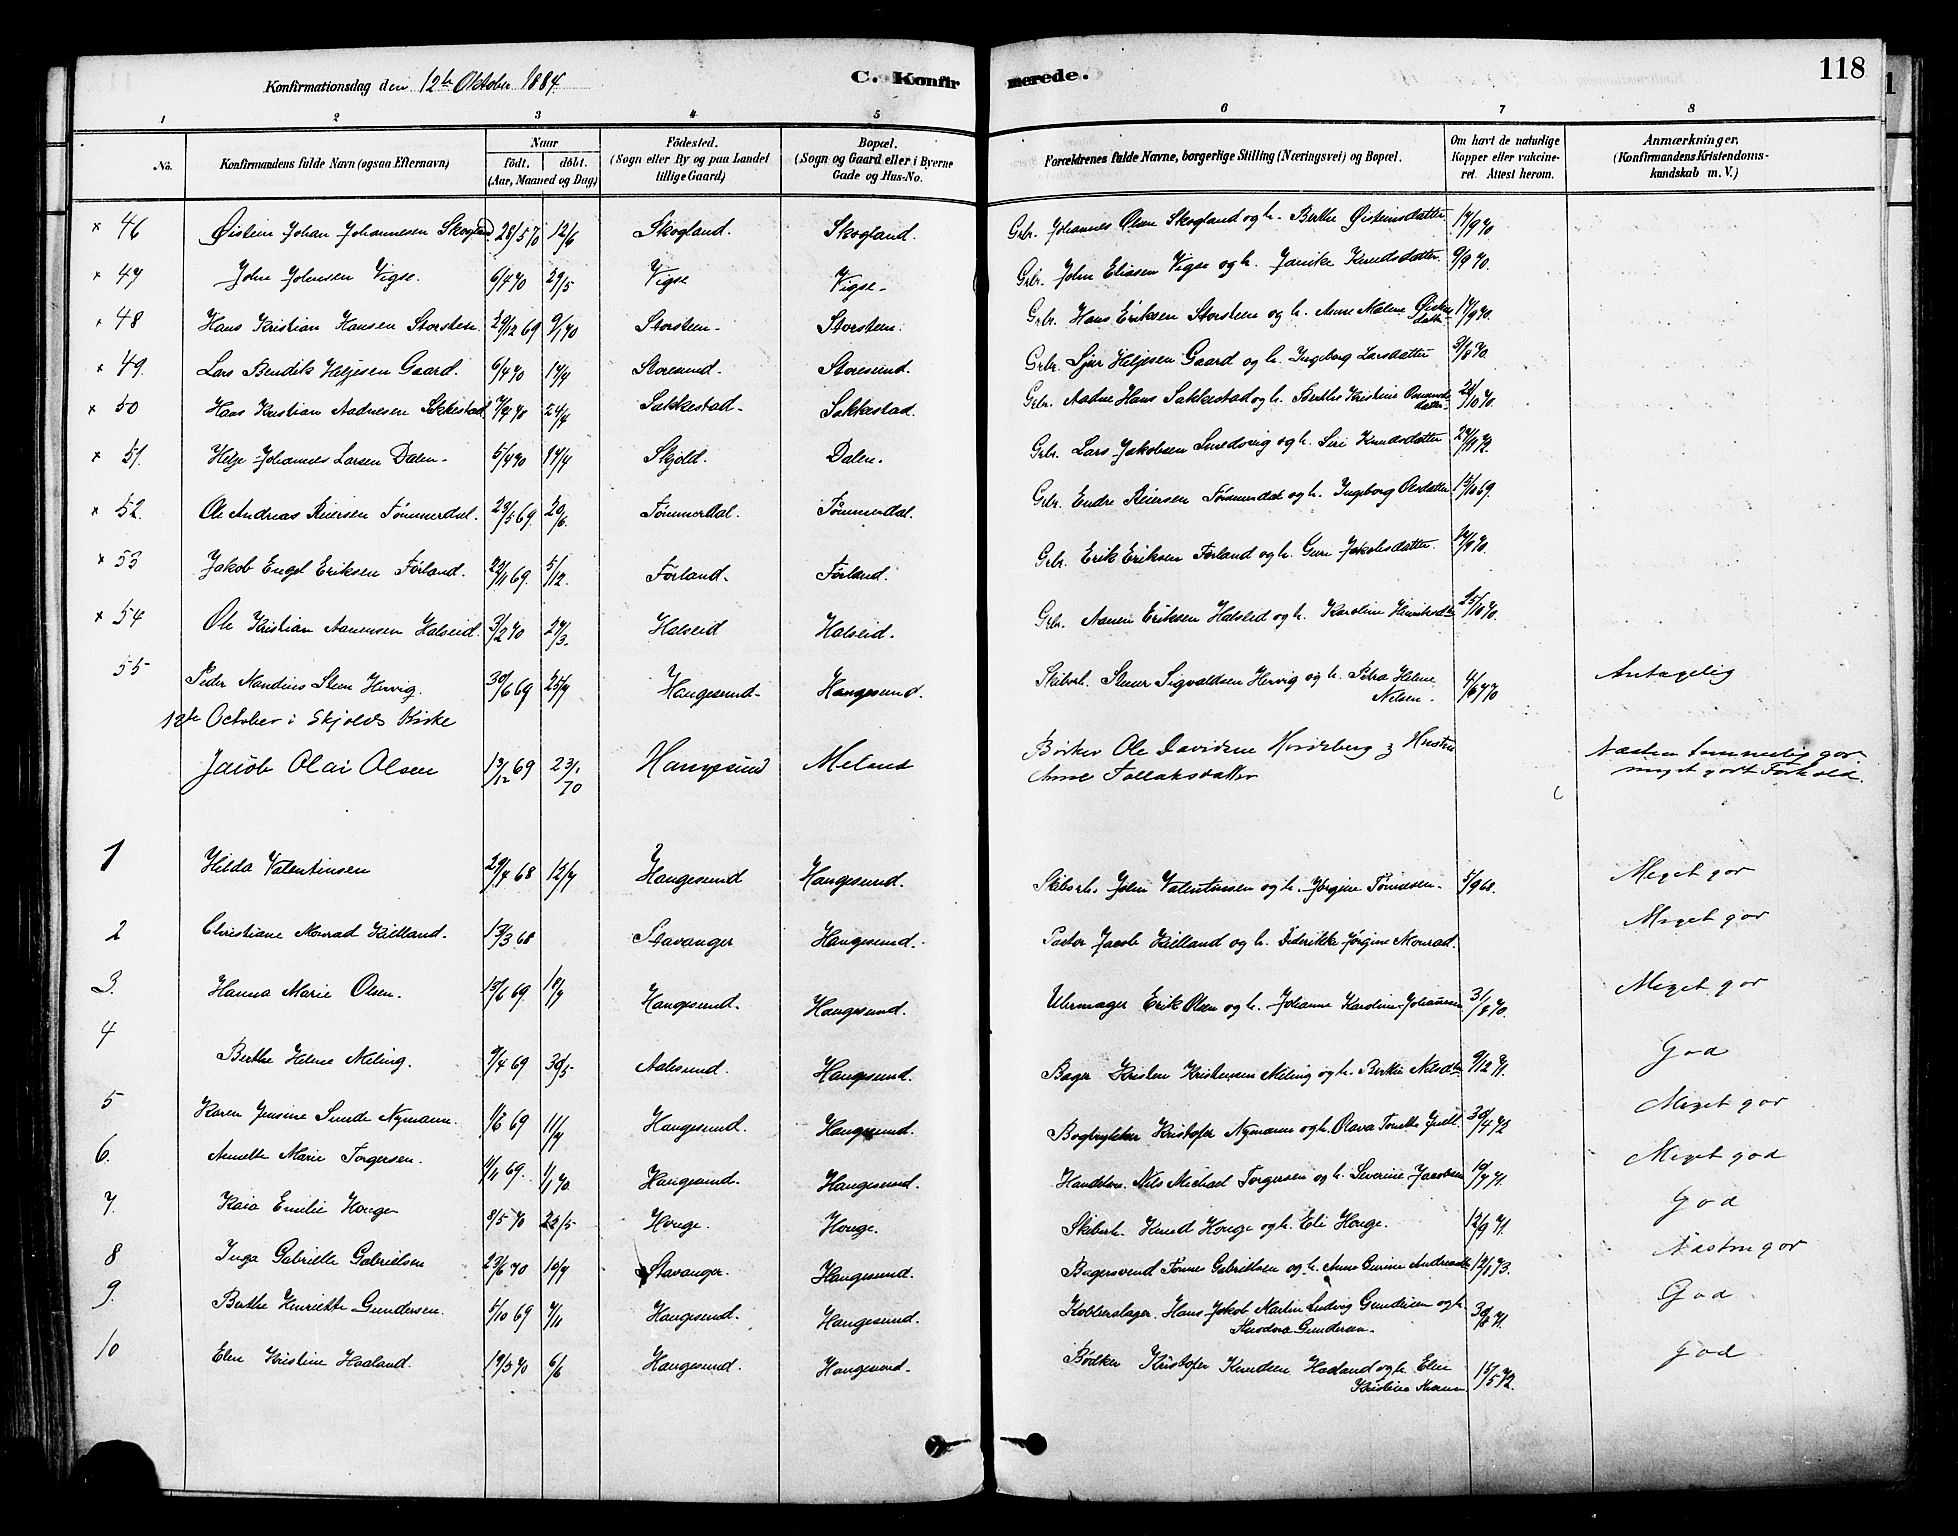 Konfirmationsdag den 12te Oktober 1884.
C. Konfirmerede.
118
1 2 3 4 5 6 7 8
No.
Konfirmandens fulde Navn (ogsaa Efternavn)
Naar
födt. döbt.
(Aar, Maaned og Dag)
Födested.
(Sogn eller By og paa Landet tillige Gaard)
Bopæl.
(Sogn og Gaard eller i Byerne Gade og Hus-No.
Forældrenes fulde Navne, borgerlige Stilling (Næringsvei) og Bopæl.
Om havt de naturlige Kopper eller vakcineret. Attest herom.
Anmærkninger.
(Konfirmandens Kristendomskundskab m. V.)
× 46 Øistein Johan Johannesen Skogland 28/5 70 12/6 Skogland. Skogland. Grbr. Johannes Olsen Skogland og h. Berthe Øisteinsdatter 17/9 70.
× 47 John Johnsen Vigse. 6/4 70 29/5 Vigse Vigse. Grbr. John Eliasen Vigse og h. Janike Knudsdatter. 9/9 70.
× 48 Hans Kristian Hansen Storsteen. 29/12 69 9/1 70 Storsteen. Storsteen. Grbr. Hans Eriksen Storsteen og h. Anne Malene datter 17/9 70.
× 49. Lars Bendik Heljesen Gaard. 6/4 70 17/4 Storesund. Storesund. Grbr. Heljesen Gaard og h. Ingeborg Larsdatter 3/8 70.
× 50 Hans Kristian Aadnesen Sakkestad 7/4 70 24/4 Sakkestad. Sakkestad. Grbr. Aadne Hans Sakkestad og h. Berthe Kristine datter 70.
× 51. Helje Johannes Larsen Dalen. 5/4 70 17/4 Skjold. Dalen. Grbr. Lars Jakobsen Smedsvig og h. Siri Knudsdatter 72.
× 52. Ole Andreas Reiersen Tømmerdal. 23/5 69. 20/6. Tømmerdal. Tømmerdal. Grbr. Endre Reiersen Tømmerdal og h. Ingeborg Olsdatter 15/10 69.
× 53 Jakob Engel Eriksen Førland. 22/11 69. 5/12. Førland. Førland. Grbr. Erik Eriksen Førland og h. Guri Jakobsdatter. 14/9 70.
× 54 Ole Kristian Aanensen Halseid. 3/2 70 27/3. Halseid Halseid. Grbr. Aanen Eriksen Halseid og h. Karoline 25/10 70.
55 Peder Nandius Steen Hervig. 30/6 69 25/7 Haugesund. Haugesund. Skibsr. Stener Sigvaldsen Hervig og h. Petra Helene Nelsen. 4/6 70 Antagelig
12te October i Skjolds Kirke
Jacob Olai Olsen 13/12 69 23/1 70 Haugesund Meland Bødker Ole Davidsen og Hustru Anne Tollaksdatter Næsten meget godt Forhold.
1 Hilda Valentinsen 29/4 68 12/7 Haugesund Haugesund. Skibsr. John Valentinsen og h. Jørgine Tønnesen. 5/9 68. Meget god
2 Christiane Monrad Kielland. 13/3 68 Stavanger Haugesund. Pastor Jacob Kielland og h. Diderikke Jørgine Monrad. Meget god
3. Hanna Marie Olsen. 13/6 69 18/7 Haugesund. Haugesund. Uhrmager Erik Olsen og h. Johanne Karoline Johannesen 31/8 70. Meget god
4 Berthe Helene Meling. 9/4 69 30/5 Aalesund. Haugesund. Bager Kristen Kristensen Meling og h. Berthe 9/12 71. God
5 Karen Jensine Sunde Nymann. 1/6 69 11/7 Haugesund. Haugesund. Bogtrykker Kristofer Nymann og h. Olava Tomette 30/4 72 Meget god
6. Annette Marie Torgersen. 11/11 69. 1/1 70. Haugesund. Haugesund. Handelsm. Nels Michael Torgersen og h. Severine Jacobsen 10/7 71. Meget god
7. Kaia Emilie Houge 8/5 70 22/5 Houge. Houge. Skibsr. Knud Houge og h. Eli Houge. 12/9 71. God
8 Inga Gabrielle Gabrielsen 23/6 70 10/7 Stavanger. Haugesund. Bagersvend Tønnes Gabrielsen og h. Anne Gurine 12/1 73. Næsten god
9. Berthe Henriette Gundersen. 5/10 69 7/11 Haugesund. Haugesund. Kobberslager. Hans Jakob Martin Ludvig Gundersen og h. Theodora Gundersen. 30/8 71. God
10 Elen Kristine Haaland. 19/3 70 6/6 Haugesund. Haugesund. Bødker Kristofer Knudsen Haaland og h. Elen Kristine 15/5 72. God